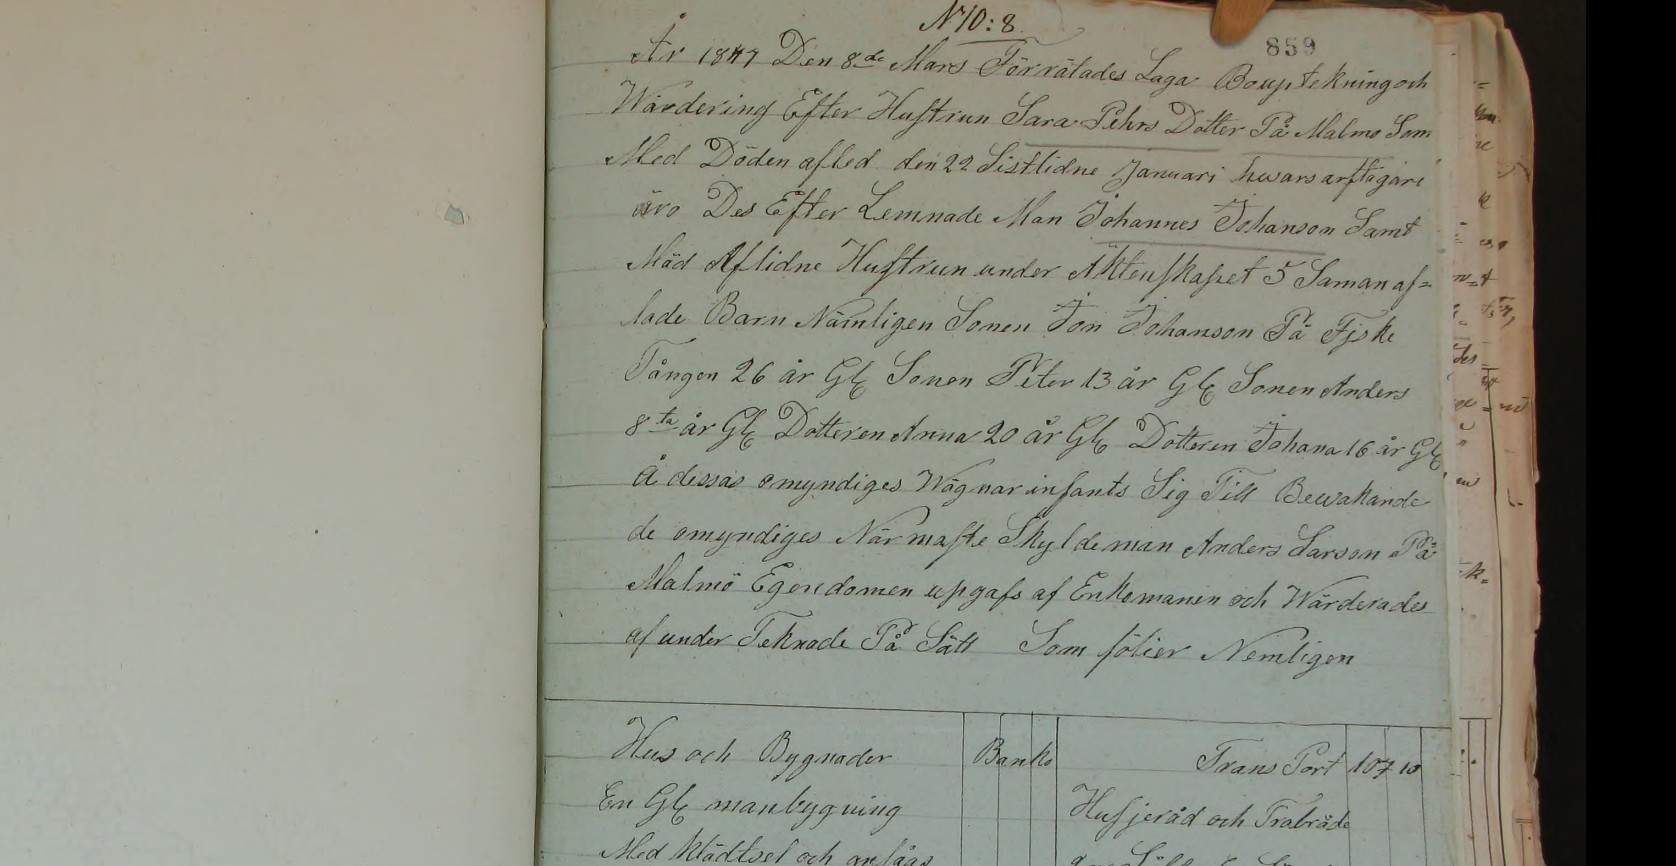 N 10:8.
859
År 1847 Den 8de Mars Förrätades Laga Bouptekning och
Wärdering Efter Hustrun Sara Pehrs Dotter På Malmö Som
Med Döden afled den 22 Sistlidne Januari hwars arftagare
äro Des Efter Lemnade Man Johannes Johanson Samt
Mäd Aflidne Hustrun under Äktenskapet 5 Saman af=
lade Barn Nämligen Sonen Jon Johanson På Fiske
Tången 26 år Gl Sonen Peter 13 år Gl Sonen Anders
8ta år Gl Dotteren Anna 20 år Gl Dotteren Johana 16 år Gl
Å dessas omyndiges Wägnar infants Sig Till Bewakande
de omyndiges Närmaste Skyldeman Anders Larson På
Malmö Egendomen upgafs af Enkemanen och Wärderades
af under Teknade På Sätt Som fölier Nemligen
Hus och Bygnader Banko
En Gl manbygning
Med Klädtsel och
Trans Port 107 10
Husjeråd och Träbräde